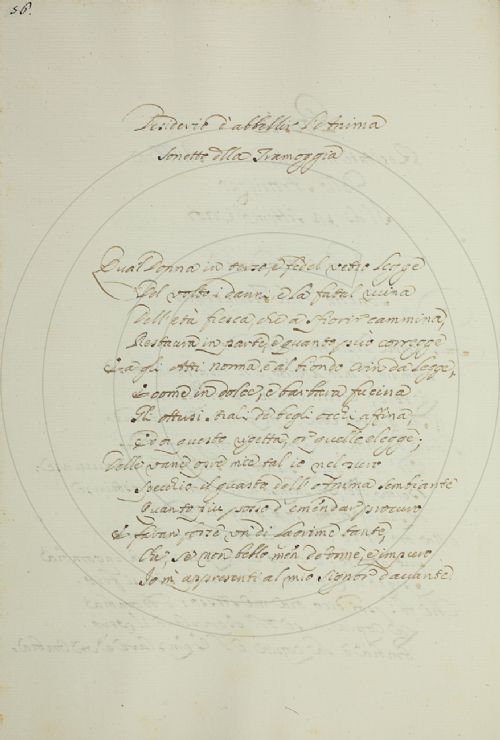 56.
Desiderio d'abbellir l'Anima
Sonetto della Tramoggia
Qual Donna in terso, e fedel vetro legge
Del volto i danni, e la fatal ruina
Dell'età fresca, che a sfiorir cammina,
Restaura in parte, e quanto può corregge
Dà gli Atti norma, e al biondo crin dà legge,
E come in dolce, e barbara fucina
Gli ottusi strali de begli occhi affina
Ed or questo rigetta, or quello elegge;
Delle vane opre mie tal io nel puro
Specchio il guasto dell'Anima sembiante
Quanto più posso d'emendar procuro
E faran forse un dì lagrime tante,
Ch'io se non bello men deforme, e impuro
Io m'appresenti al mio Signor davante.